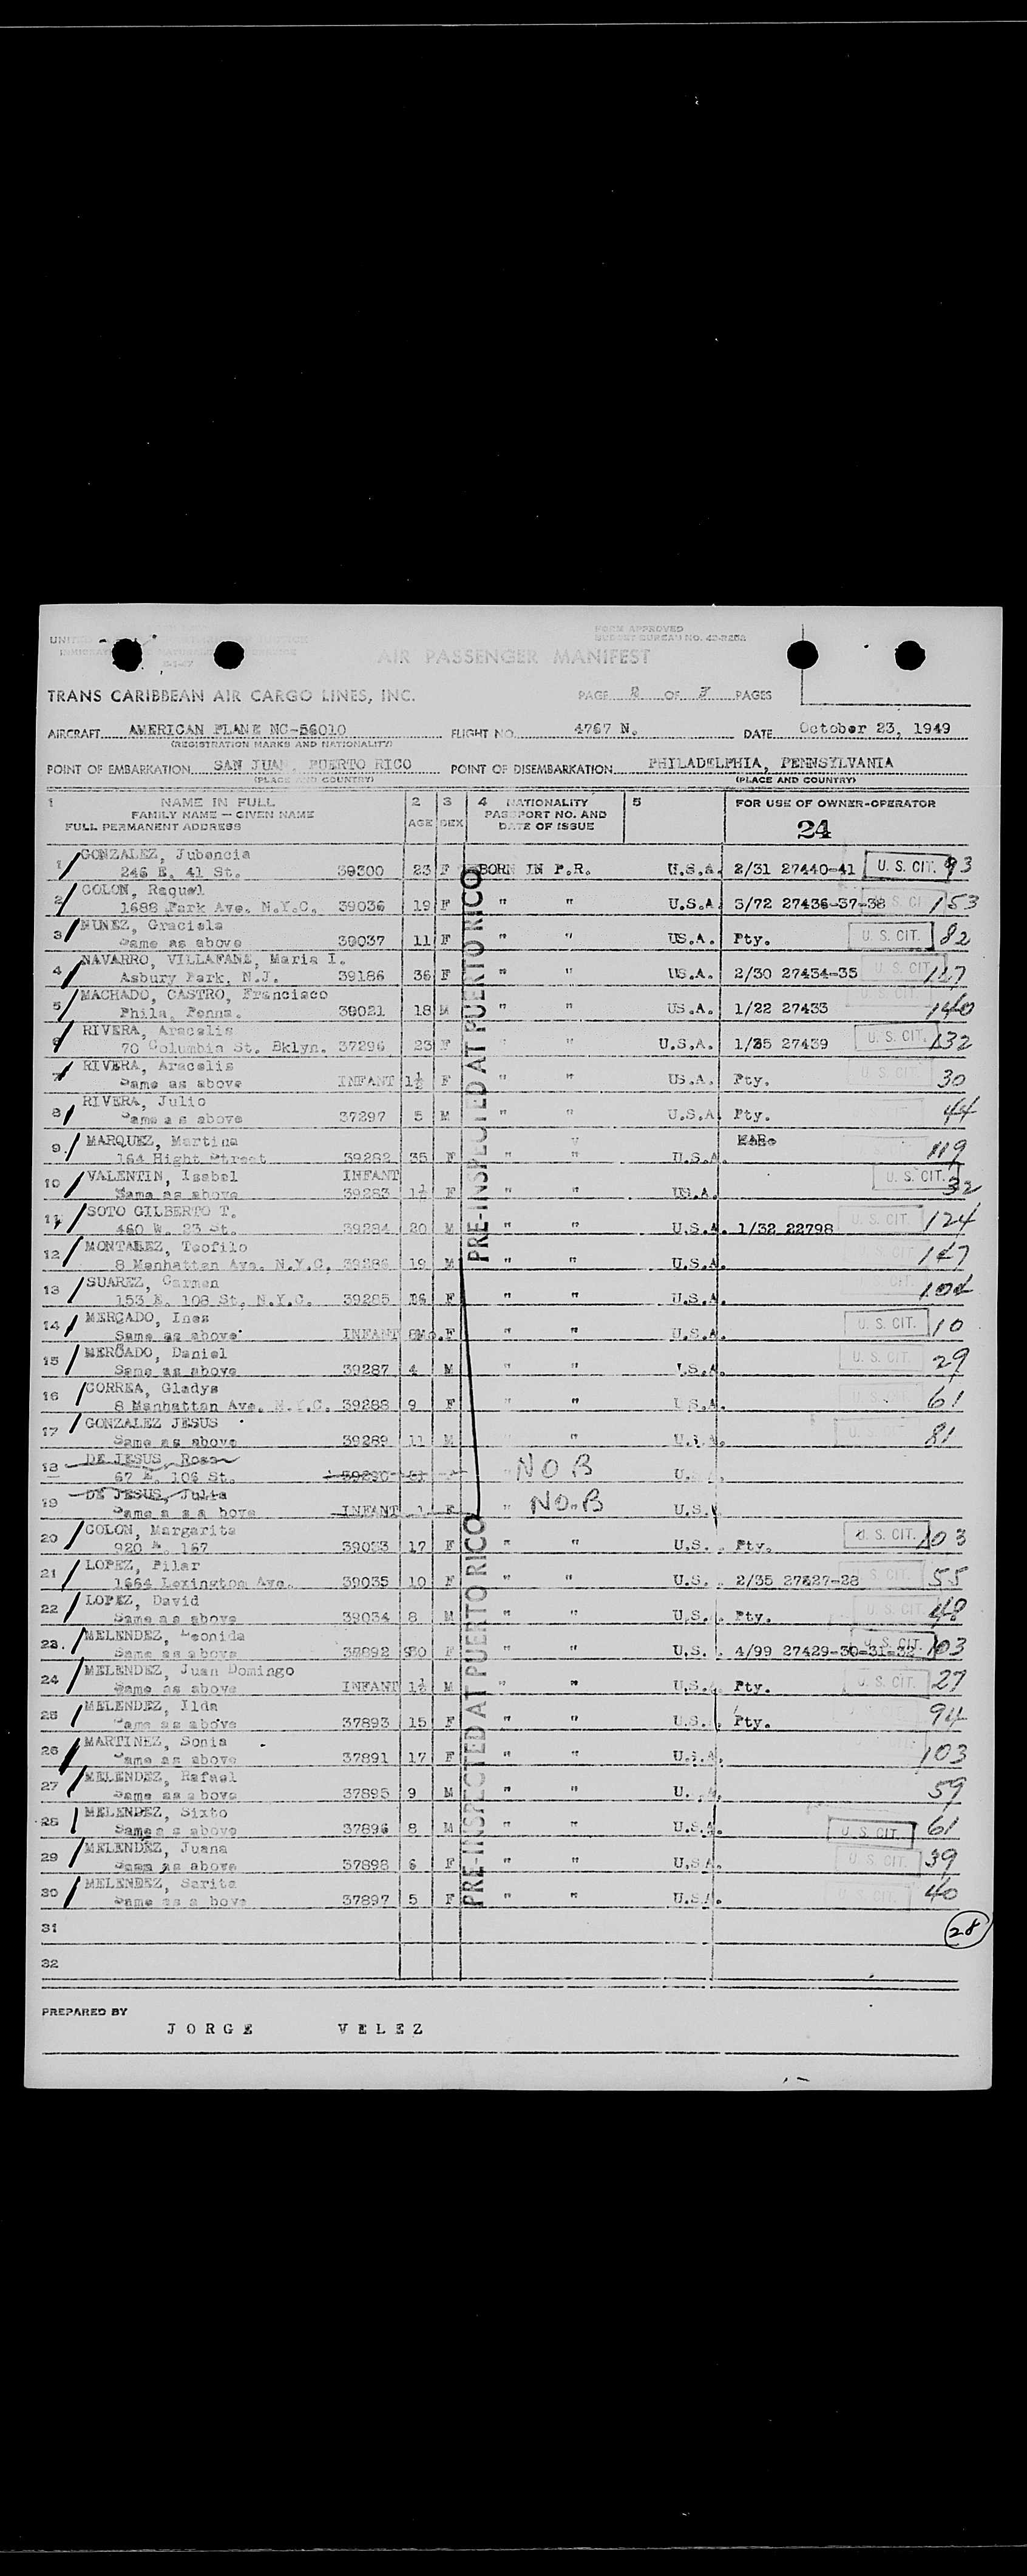 FORM APPROVED
BUDGET BUREAU NO.
AIR PASSENGER MANIFEST
TRANS CARIBBEAN AIR CARGO LINES, INC. PAGE 2 OF 3 PAGES
AIRCRAFT AMERICAN PLANE NC-56010 FLIGHT NO. 4767 N. DATE October 23, 1949
(REGISTRATION MARKS AND NATIONALITY)
POINT OF EMBARKATION SAN JUAN, PUERTO RICO POINT OF DISEMBARKATION PHILADELPHIA, PENNSYLVANIA
(PLACE AND COUNTRY) (PLACE AND COUNTRY)
1 NAME IN FULL 2 3 4 NATIONALITY 5 FOR USE OF OWNER-OPERATOR
FAMILY NAME — GIVEN NAME AGE SEX PASSPORT NO. AND
FULL PERMANENT ADDRESS DATE OF ISSUE 24
PRE-INSPECTED AT PUERTO RICO
1 GONZALEZ, Jubencia
246 E. 41 St. 39300 23 F BORN IN P.R. U.S.A. 2/31 27440-41 U. S. CIT. 93
2 COLON, Raquel
1688 Park Ave. N.Y.C. 39036 19 F " " U.S.A. 3/72 27436-37-38 153
3 NUNEZ, Graciela
Same as above 39037 11 F " " US.A. Pty. U. S. CIT. 82
4 NAVARRO, VILLAFANE, Maria I.
Asbury Park, N.J. 39186 36 F " " US.A. 2/30 27434-35 U. S. CIT. 117
5 MACHADO, CASTRO, Francisco
Phila. Penna. 39021 18 M " " US.A. 1/22 27433 140
6 RIVERA, Aracelis
70 Columbia St. Bklyn. 37296 23 F " " U.S.A. 1/35 27439 U. S. CIT. 132
7 RIVERA, Aracelis
Same as above INFANT 1½ F " " US.A. Pty. U. S. CIT. 30
8 RIVERA, Julio
Same as above 37297 5 M " " U.S.A. Pty. 44
9. MARQUEZ, Martina
164 Hight Street 39282 35 F " " U.S.A. 119
10 VALENTIN, Isabel INFANT
Same as above 39283 1½ F " " US.A. U. S. CIT. 32
11 SOTO GILBERTO T.
460 W. 23 St. 39284 20 M " " U.S.A. 1/32 22798 U. S. CIT. 124
12 MONTAÑEZ, Teofilo
8 Manhattan Ave. N.Y.C. 39286 19 M " " U.S.A. 147
13 SUAREZ, Carmen
153 E. 108 St. N.Y.C. 39285 F " " U.S.A. CIT.
14 MERCADO, Ines
Same as above INFANT 8Mo. F " " U.S.A. U. S. CIT. 10
15 MERCADO, Daniel
Same as above 39287 4 M " " U.S.A. U. S. CIT. 29
16 CORREA, Gladys
8 Manhattan Ave. N.Y.C. 39288 9 F " " U.S.A. 61
17 GONZALEZ JESUS
Same as above 39289 11 M " U.S.A. 81
18 DE JESUS, Rosa
67 E. 106 St. 39290 " NO B U.
19 DE JESUS, Julia
Same a s a bove INFANT 1 F " NO.B U.S.
PRE-INSPECTED AT PUERTO RICO
20 COLON, Margarita
920 E. 167 39033 17 F " " U.S. Pty. U. S. CIT. 103
21 LOPEZ, Pilar
1664 Lexington Ave. 39035 10 F " " U.S. 2/35 27427-28 S. CIT. 55
22 LOPEZ, David
Same as above 39034 8 M " " U.S. Pty. U. S. CIT. 48
23. MELENDEZ, Leonida
Same as above 37892 30 F " " U.S. 4/99 27429-30-31-32 U. S. CIT. 103
24 MELENDEZ, Juan Domingo
Same as above INFANT 1½ M " " U.S. Pty. U. S. CIT. 27
25 MELENDEZ, Ilda
Same as above 37893 15 F " " U.S. Pty. 94
26 MARTINEZ, Sonia
Same as above 37891 17 F " " U.S.A. 103
27 MELENDEZ, Rafael
Same as a bove 37895 9 M " " U. A. 59
28 MELENDEZ, Sixto
Same a s above 37896 8 M " " U.S.A. U. S. CIT. 61
29 MELENDEZ, Juana
Same as above 37898 6 F " " U.S.A. U. S. CIT. 39
30 MELENDEZ, Sarita
Same as a bove 37897 5 F " " U.S.A. 40
31 28
32
PREPARED BY
JORGE VELEZ